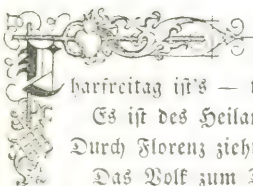 Charfreitag ist's —
Es ist des Heilan
Durch Florenz zieh
Das Volk zum